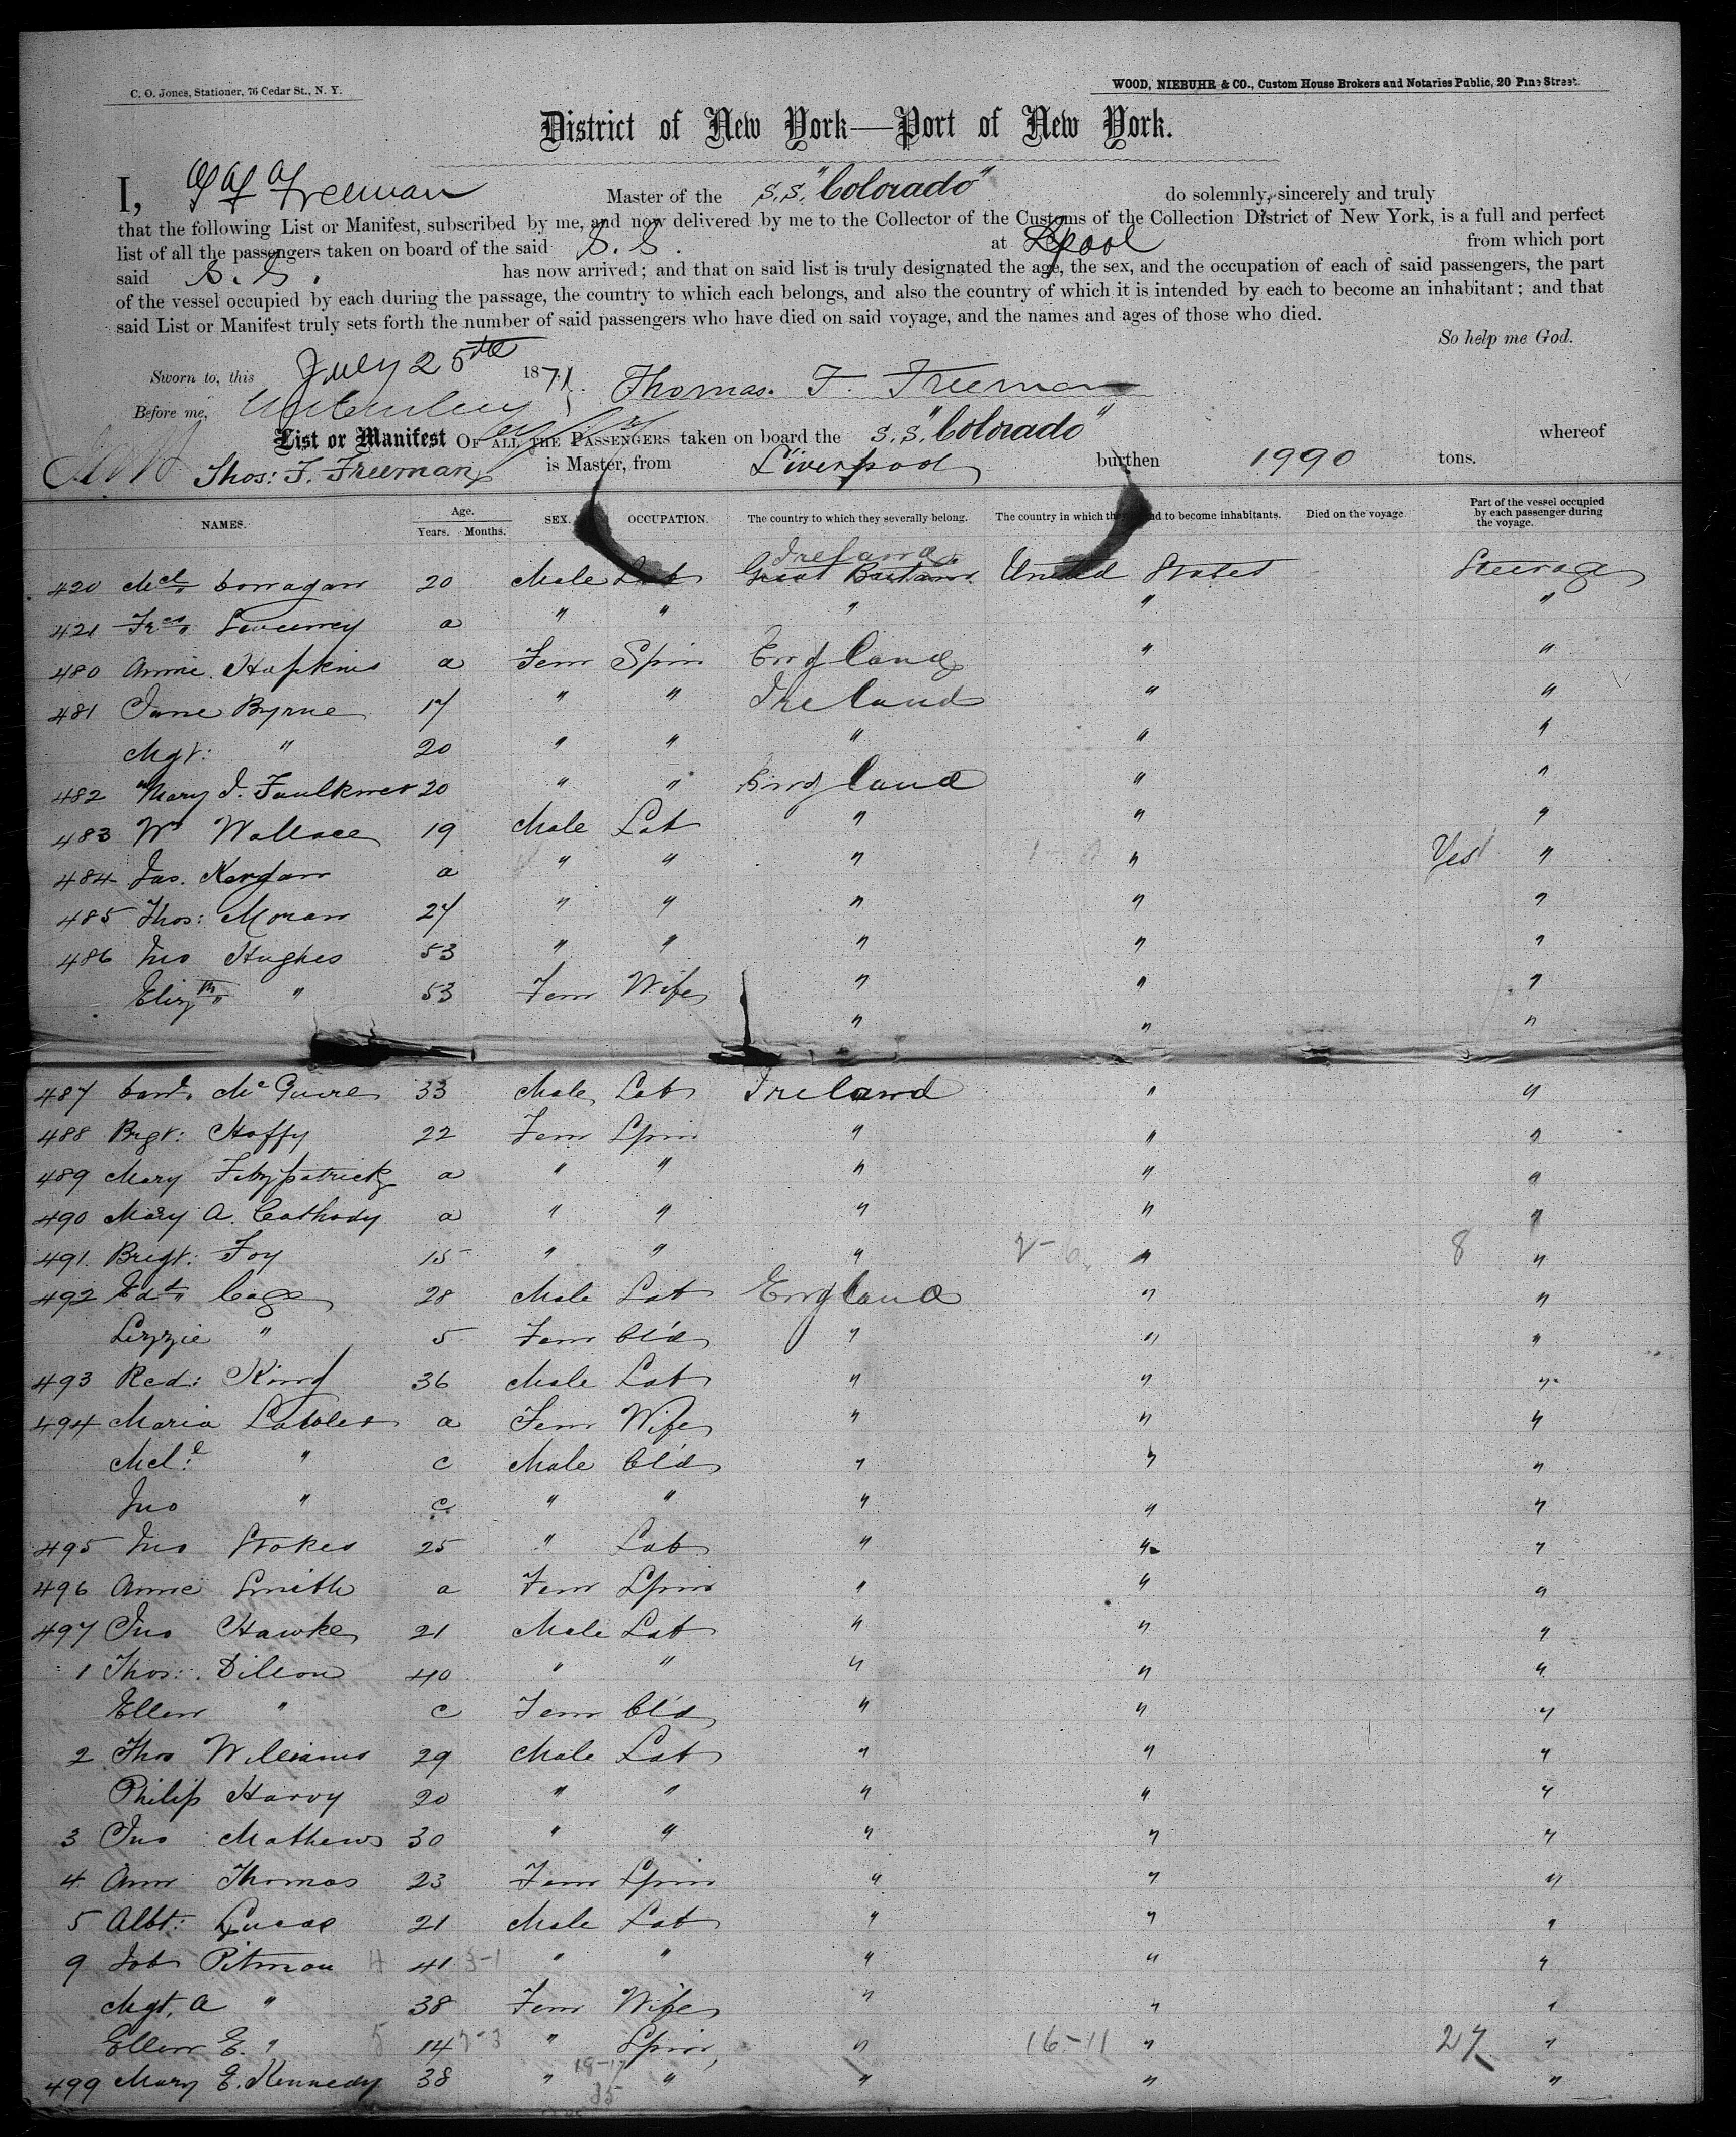 C. O. Jones, Stationer, 76 Cedar St., N. Y.
WOOD, NIEBUHR & CO., Custom House Brokers and Notaries Public, 20 Pine Street.
District of New York—Port of New York.
I, Freeman Master of the S.S. "Colorado" do solemnly, sincerely and truly
that the following List or Manifest, subscribed by me, and now delivered by me to the Collector of the Customs of the Collection District of New York, is a full and perfect
list of all the passengers taken on board of the said S. S. at Lpool from which port
said S. S. has now arrived; and that on said list is truly designated the age, the sex, and the occupation of each of said passengers, the part
of the vessel occupied by each during the passage, the country to which each belongs, and also the country of which it is intended by each to become an inhabitant; and that
said List or Manifest truly sets forth the number of said passengers who have died on said voyage, and the names and ages of those who died.
So help me God.
Sworn to, this July 25th 1871. Thomas. F. Freeman
Before me,
List or Manifest OF ALL THE PASSENGERS taken on board the S.S. "Colorado" whereof
Thos: F. Freeman is Master, from Liverpool burthen 1990 tons.
NAMES. Age. Years. Months. SEX. OCCUPATION. The country to which they severally belong. The country in which they to become inhabitants. Died on the voyage. Part of the vessel occupied by each passenger during the voyage.
Ireland
420 Mcl. Corragan 20 Male Lab Great Britain United States Steerage
421 Frcs. Sweeney a " " " " "
480 Annie Hopkins a Fem Spin England " "
481 Jane Byrne 17 " " Ireland " "
Mgt: " 20 " " " " "
482 Mary J. Faulkner 20 " " England " "
483 Wm Wallace 19 Male Lab " " "
484 Jas. a " " " " Yes "
485 Thos: Moran 27 " " " " "
486 Jno Hughes 53 " " " " "
Elizth " 53 Fem Wife " " "
" " "
487 Mc Guire 33 Male Lab Ireland " "
488 Brgt: Haffy 22 Fem Spin " " "
489 Mary Fitzpatrick a " " " " "
490 Mary A. Cathody a " " " " "
491 Bregt: Foy 15 " " " 2-6 " 8 "
492 Edd. Cage 28 Male Lab England " "
Lizzie " 5 Fem Cl'd " " "
493 Red: King 36 Male Lab " " "
494 Maria Lawler a Fem Wife " " "
Mcl: " c Male Cl'd " " "
Jno " c " " " " "
495 Jno Stokes 25 " Lab " " "
496 Annie Smith a Fem Spin " " "
497 Jno Hawke 21 Male Lab " " "
1 Thos: Dillon 40 " " " " "
Ellen " c Fem Cl'd " " "
2 Thos Williams 29 Male Lab " " "
Philip Harvy 20 " " " " "
3 Jno Mathews 30 " " " " "
4 Ann Thomas 23 Fem Spin " " "
5 Albt: Lucas 21 Male Lab " " "
9 Job Pitman 41 3-1 " " " " "
Mgt. A " 38 Fem Wife " " "
Ellen E. " 5 14 " Spin " 16-11 " 27 "
499 Mary E. Kennedy 38 " " " " "
35